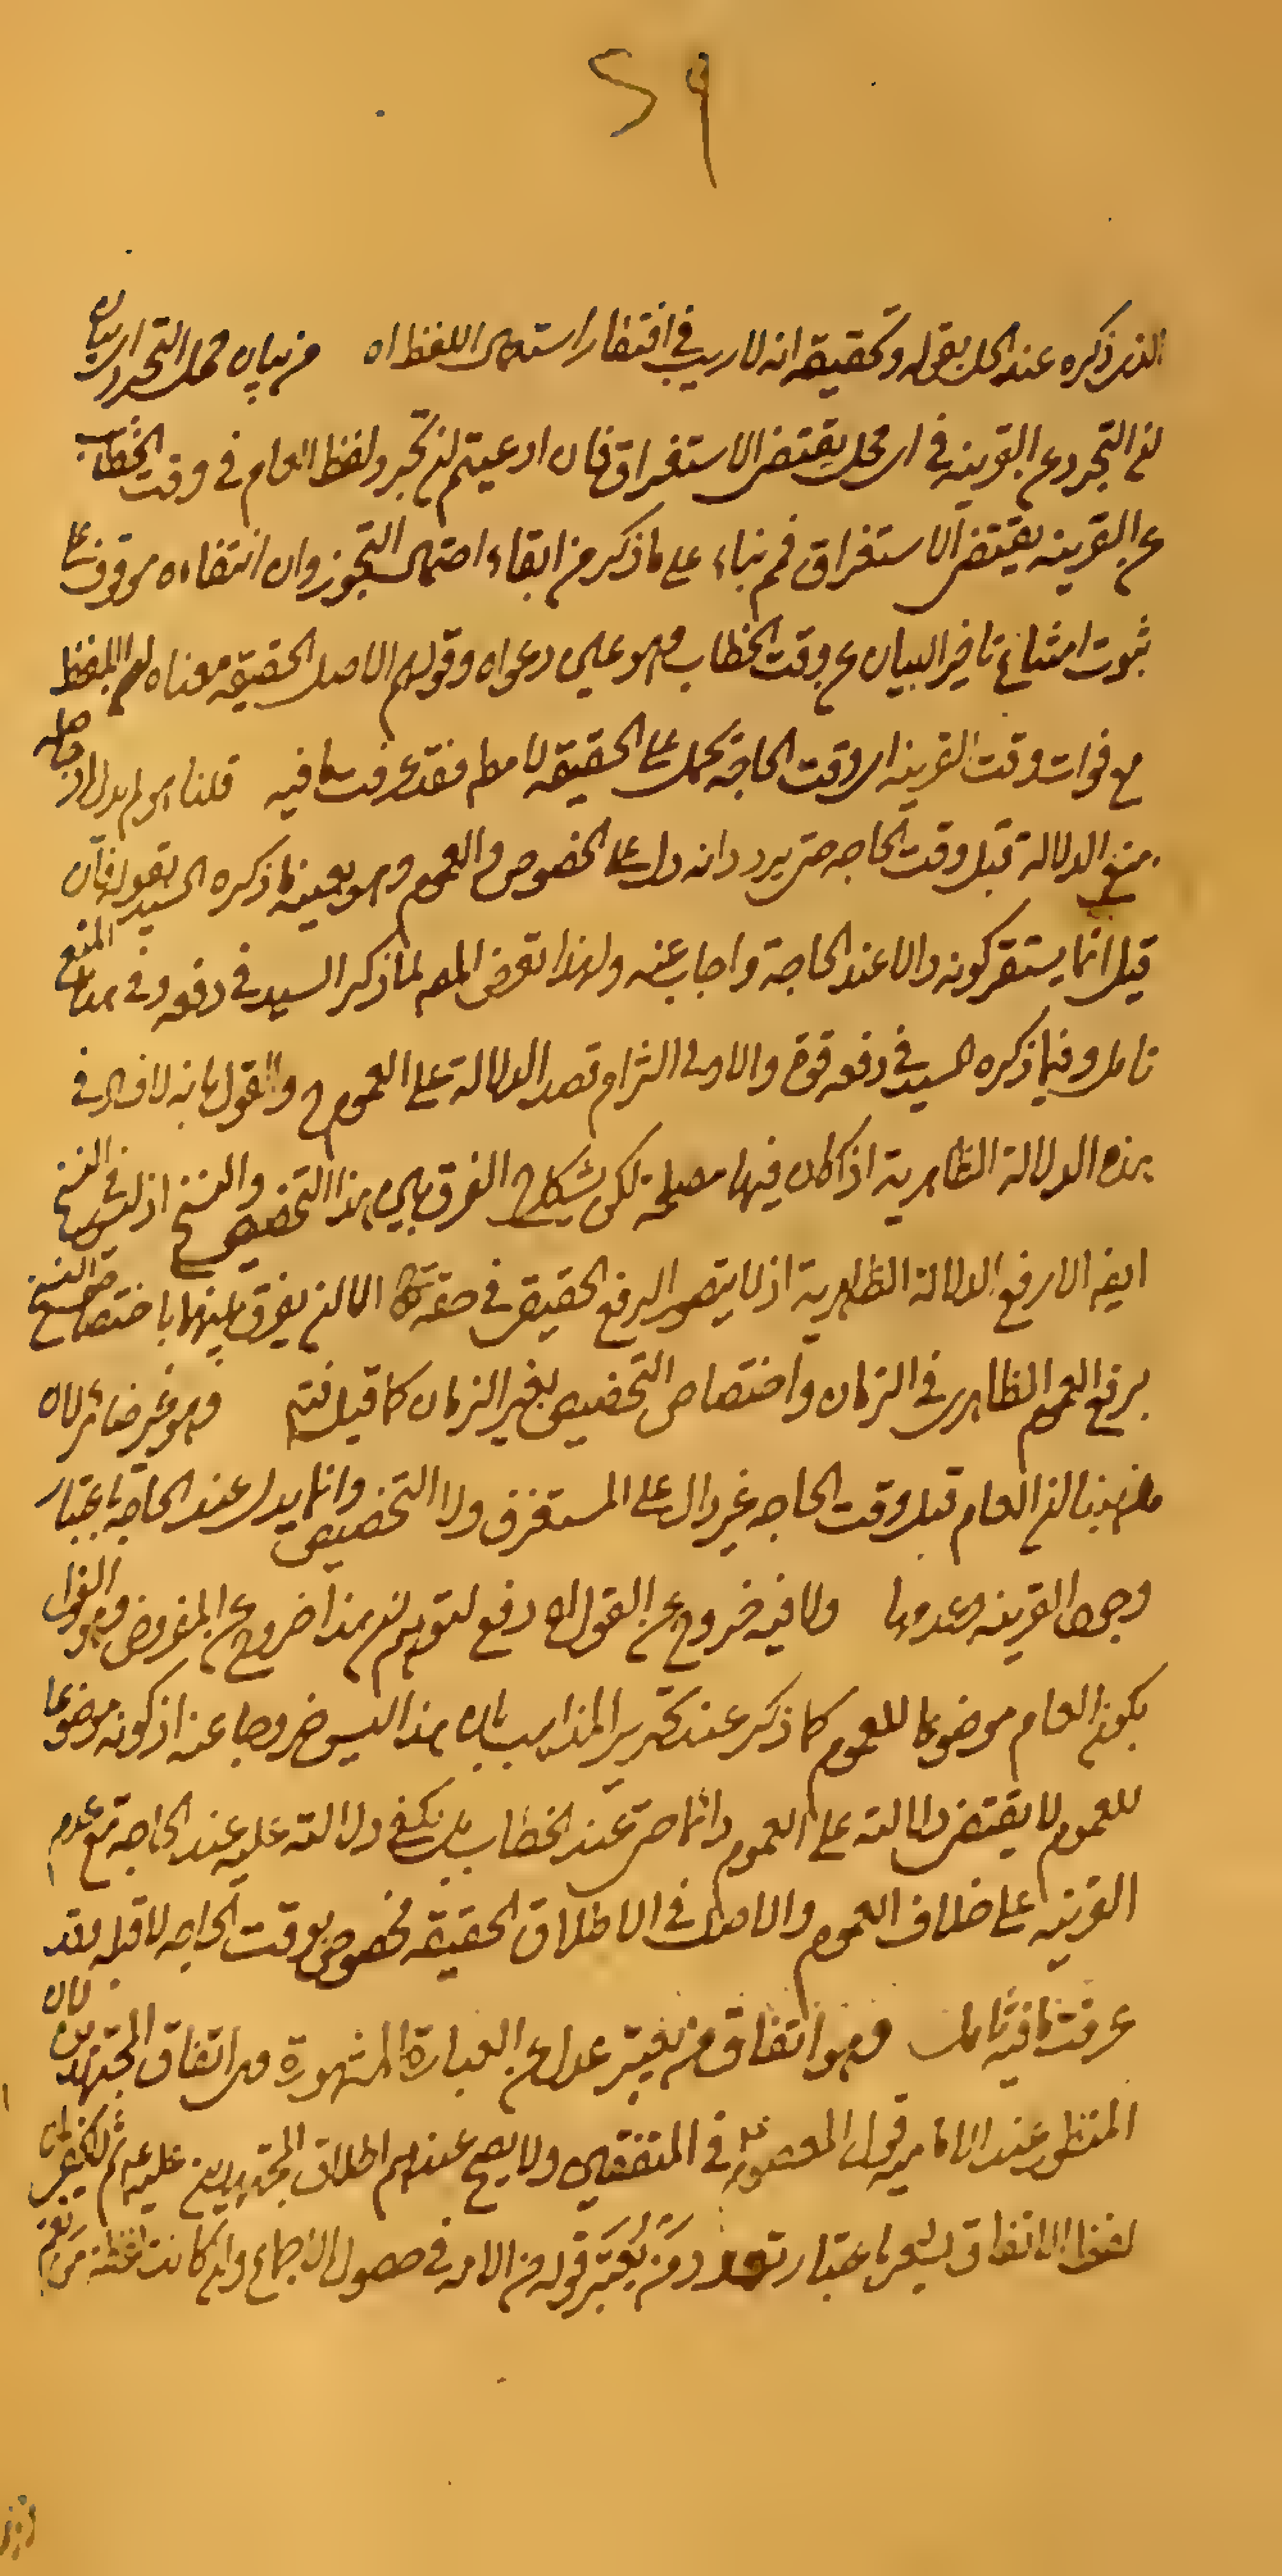 ٢٩
الذى ذكره عند الحل بقوله وتحقيقه انه لا ريب فى افتقار استعمال اللفظ اه من بيان محل التجرد اى بيان
ان التجرد عن القرينة فى اى محل يقتضى الاستغراق فان ادعيتم ان تجرد لفظ العام فى وقت الخطاب
عن القرينة يقتضى الاستغراق فم بناء على ما ذكر من ابقاء احتمال التجوز وان انتفاءه موقوف على
ثبوت امتناع تاخير البيان عن وقت الخطاب وهو عين دعواه وقولهم الاصل الحقيقة معناه ان اللفظ
مع فوات وقت القرينة اى وقت الحاجة يحمل على الحقيقة لا مطم فقد عرفت ما فيه قلنا هو لم يدل اه حاصله
منع الدلالة قبل وقت الحاجة حتى يرد انه دل على الخصوص والعموم وهو بعينه ما ذكره السيد بقوله فان
قيل انما يستقر كونه دالا عند الحاجة واجاب عنه ولهذا تعرض المص لما ذكر السيد فى دفعه وفى هذا المنع
تامل وفيما ذكره السيد فى دفعه قوة والاولى التزام قصد الدلالة على العموم والقول بانه لا فساد فى
هذه الدلالة الظاهرية اذا كان فيها مصلحة لكن يشكل ح الفرق بين هذا التخصيص والنسخ اذ ليس فى النسخ
ايض الا رفع الدلالة الظاهرية اذ لا يتصور الرفع الحقيقى فى حقه تعالى الا ان يفرق بينهما باختصاص النسخ
برفع العموم الظاهرى فى الزمان واختصاص التخصيص بغير الزمان كما قيل فتم وهو غير ضائر لان
مذهبنا ان العام قبل وقت الحاجة غير دال على المستغرق ولا التخصيص وانما يدل عند الحاجة باعتبار
وجود القرينة وعدمها ولا فيه خروج عن القول اه دفع لتوهم ان هذا خروج عن المفروض وهو القول
بكون العام موضوعا للعموم كما ذكر عند تحرير المذاهب بان هذا ليس خروجا عنه اذ كونه موضوعا
للعموم لا يقتضى دلالته على العموم دائما حتى عند الخطاب بل يكفى دلالته عليه عند الحاجة مع عدم
القرينة على خلاف العموم والاصل فى الاطلاق الحقيقة مخصوص بوقت الحاجة لا قبله وقد
عرفت ما فيه تامل وهو اتفاق من يعتبر عدل عن العبارة المشهورة وهى اتفاق المجتهدين لان
المنظور عند الامامية قول المعصوم ع فى المتفقين ولا يصح عندهم اطلاق المجتهدين عليه ثم لا يخفى ان
لفظ الاتفاق يشعر باعتبار تعدد من يعتبر قوله من الامة فى حصول الاجماع وان كانت لفظة من تعم